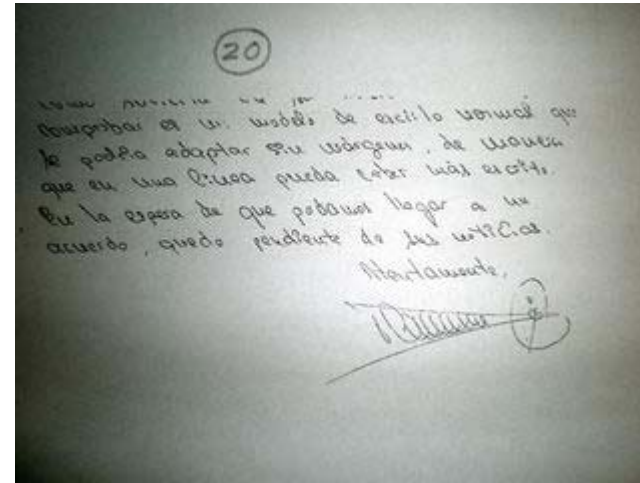 20
comprobar es un modelo de escrito normal que
le podría adaptar sin márgenes, de manera
que en una línea pueda caber más escrito.
En la espera de que podamos llegar a un
acuerdo, quedo pendiente de sus noticias.
Atentamente,